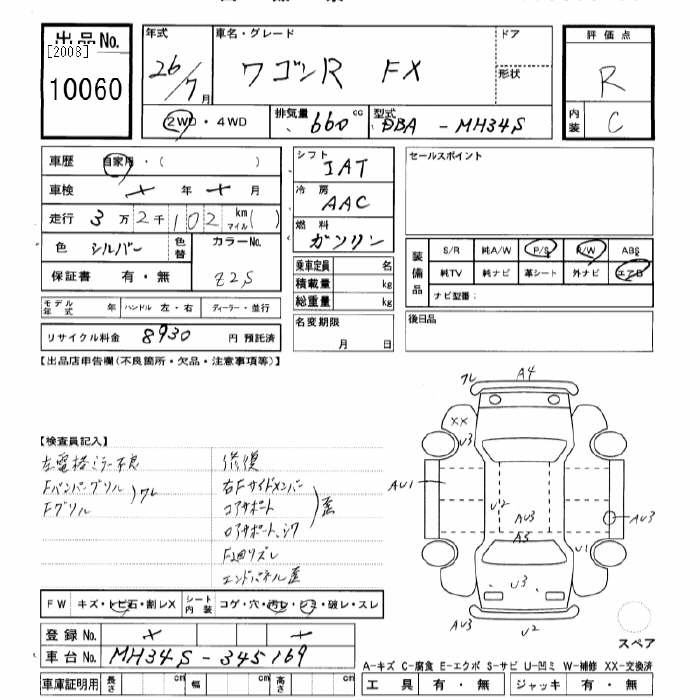 出品No.
[2008]
10060
年式
26/7月
車名・グレード
ワゴンR FX
ドア
形状
評価点
R
内装
C
2WD・4WD
排気量 660 cc
型式 DBA-MH34S
車歴 自家用・( )
車検 × 年 × 月
走行 3万2千102 km マイル( )
色 シルバー 色替
カラーNo.
Z2S
保証書 有・無
シフト
IAT
冷房
AAC
燃料
ガソリン
乗車定員 名
積載量 kg
総重量 kg
セールスポイント
装備品
S/R 純A/W P/S P/W ABS
純TV 純ナビ 革シート 外ナビ エアB
ナビ型番:
モデル年式 年 ハンドル 左・右 ディーラー・並行
リサイクル料金 8930 円 預託済
名変期限
月 日
後日品
【出品店申告欄(不良箇所・欠品・注意事項等)】
【検査員記入】
左電格ミラー不良
Fバンパーグリル
Fグリル
ワレ
修復
右Fサイドメンバー
コアサポート
ロアサポート
歪
エンドパネル歪
ワレ
A4
XX
U3
AU1
U2
AU3
A3
AU3
U1
U3
AU3
U2
スペア
FW キズ・トビ石・割レX
シート内装 コゲ・穴・汚レ・シミ・破レ・スレ
登録No. × ×
車台No. MH34S-345169
A-キズ C-腐食 E-エクボ S-サビ U-凹ミ W-補修 XX-交換済
車庫証明用 長さ cm 幅 cm 高さ cm
工具 有・無 ジャッキ 有・無